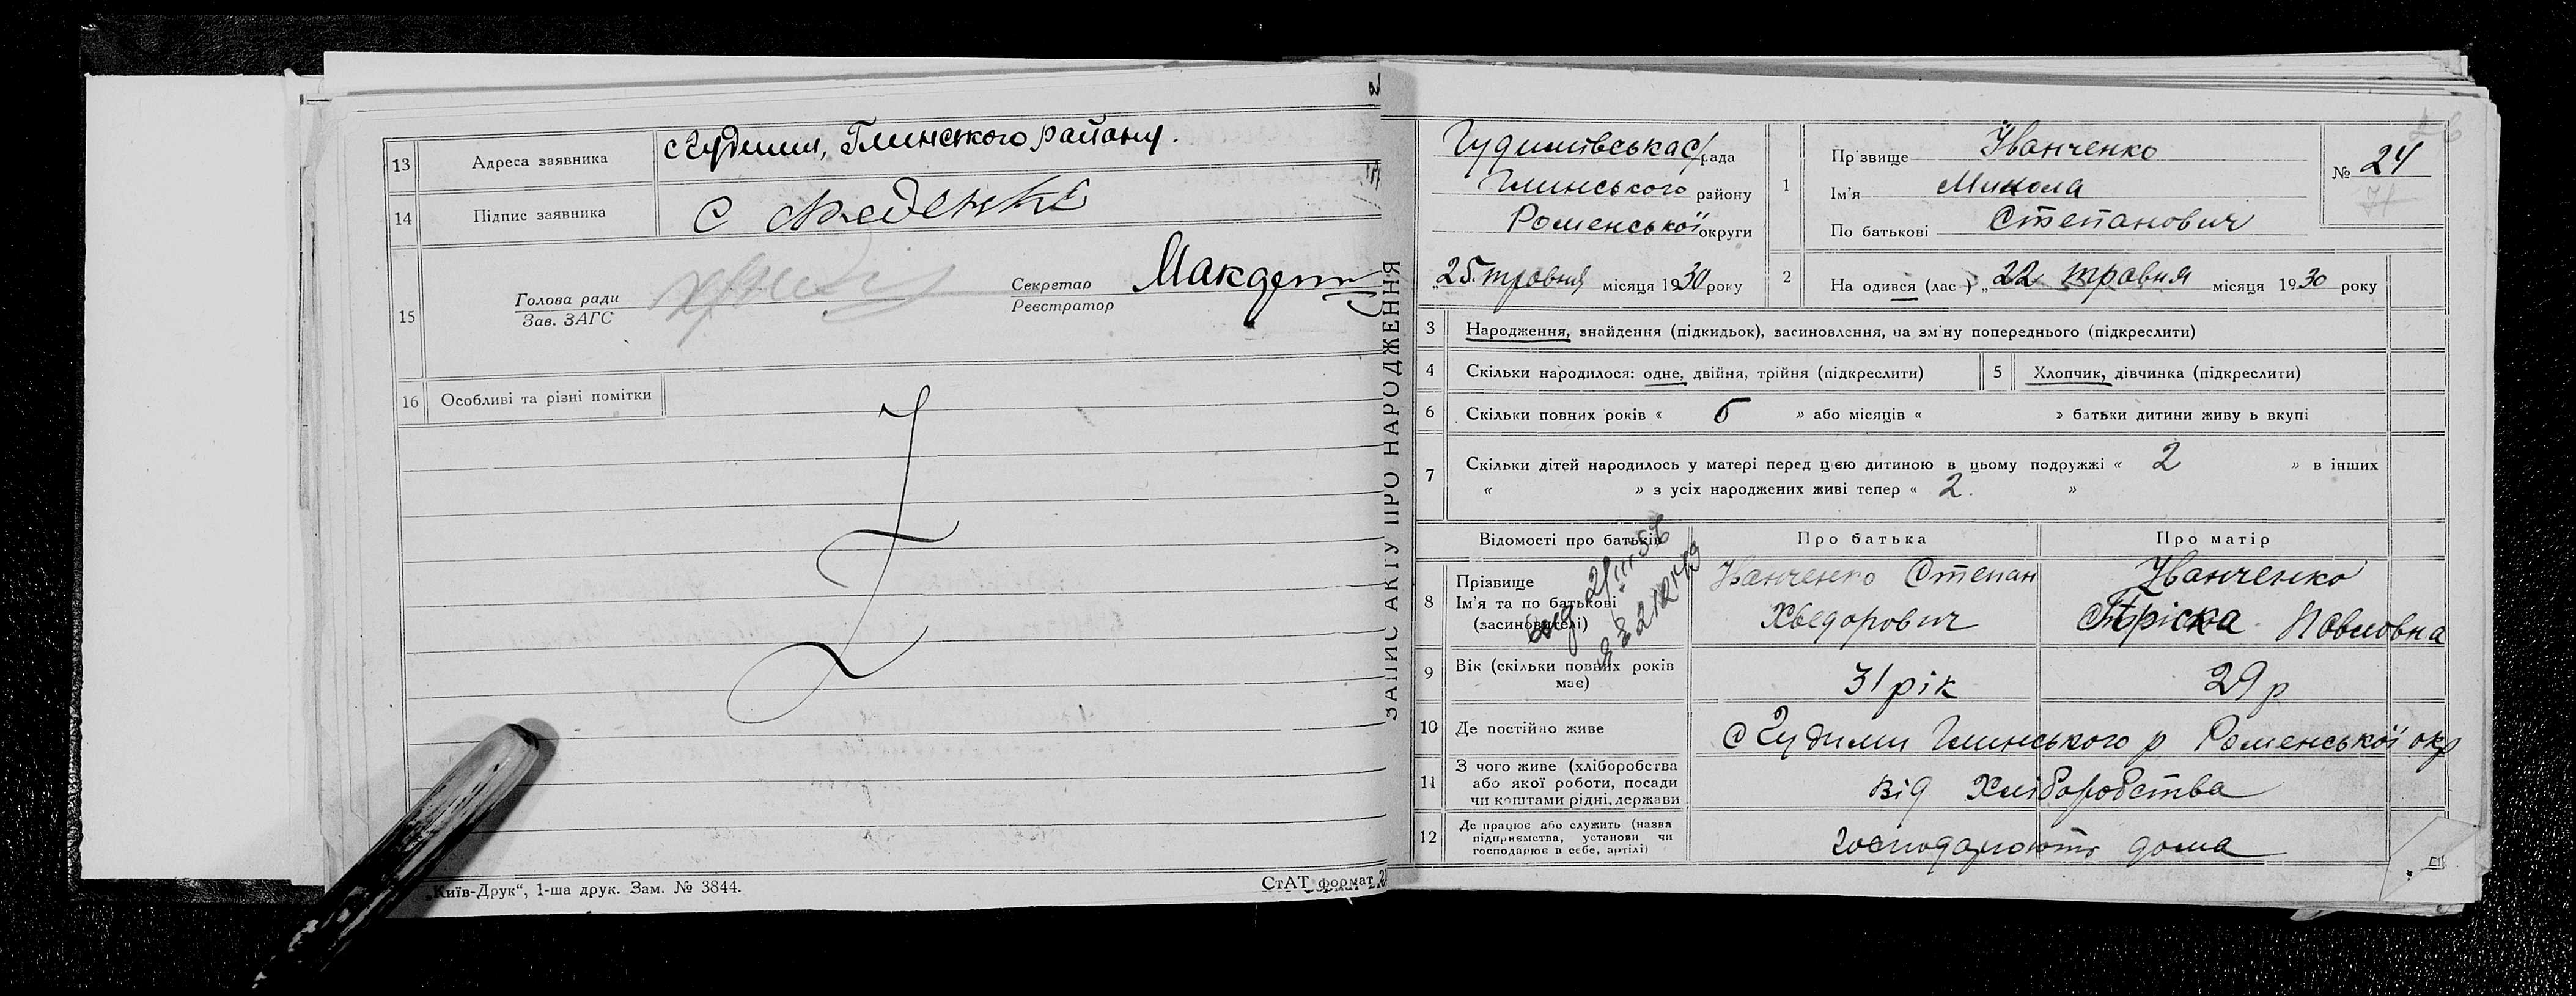 13 Адреса заявника с Гудими, Глинського району.
14 Підпис заявника С
15 Голова ради
Зав. ЗАГС
Секретар
Реєстратор
16 Особливі та різні помітки
„Київ-Друк“, 1-ша друк. Зам. № 3844.
СтАТ формат
ЗАПИС АКТУ ПРО НАРОДЖЕННЯ
Гудимівська с/рада
Глинського району
Роменської округи
„25 травня місяця 1930 року
1 Прізвище Іванченко
Ім'я Микола
По батькові Степанович
№ 24
2 На одився (лас ) „22 травня місяця 1930 року
3 Народження, знайдення (підкидьок), засиновлення, на зміну попереднього (підкреслити)
4 Скільки народилося: одне, двійня, трійня (підкреслити)
5 Хлопчик, дівчинка (підкреслити)
6 Скільки повних років « 5 » або місяців « » батьки дитини живу ь вкупі
7 Скільки дітей народилось у матері перед цією дитиною в цьому подружжі « 2 » в інших
« » з усіх народжених живі тепер « 2. »
Відомості про батьків
Про батька
Про матір
8 Прізвище
Ім'я та по батькові
(засиновителі)
Іванченко Степан
Хведорович
Іванченко
Пріська Павловна
9 Вік (скільки повних років
має)
31 рік
29 р
10 Де постійно живе
с Гудими Глинського р Роменської окр
11 З чого живе (хліборобства
або якої роботи, посади
чи коштами рідні, держави
від Хліборобства
12 Де працює або служить (назва
підприємства, установи чи
господарює в себе, артілі)
господарюють дома